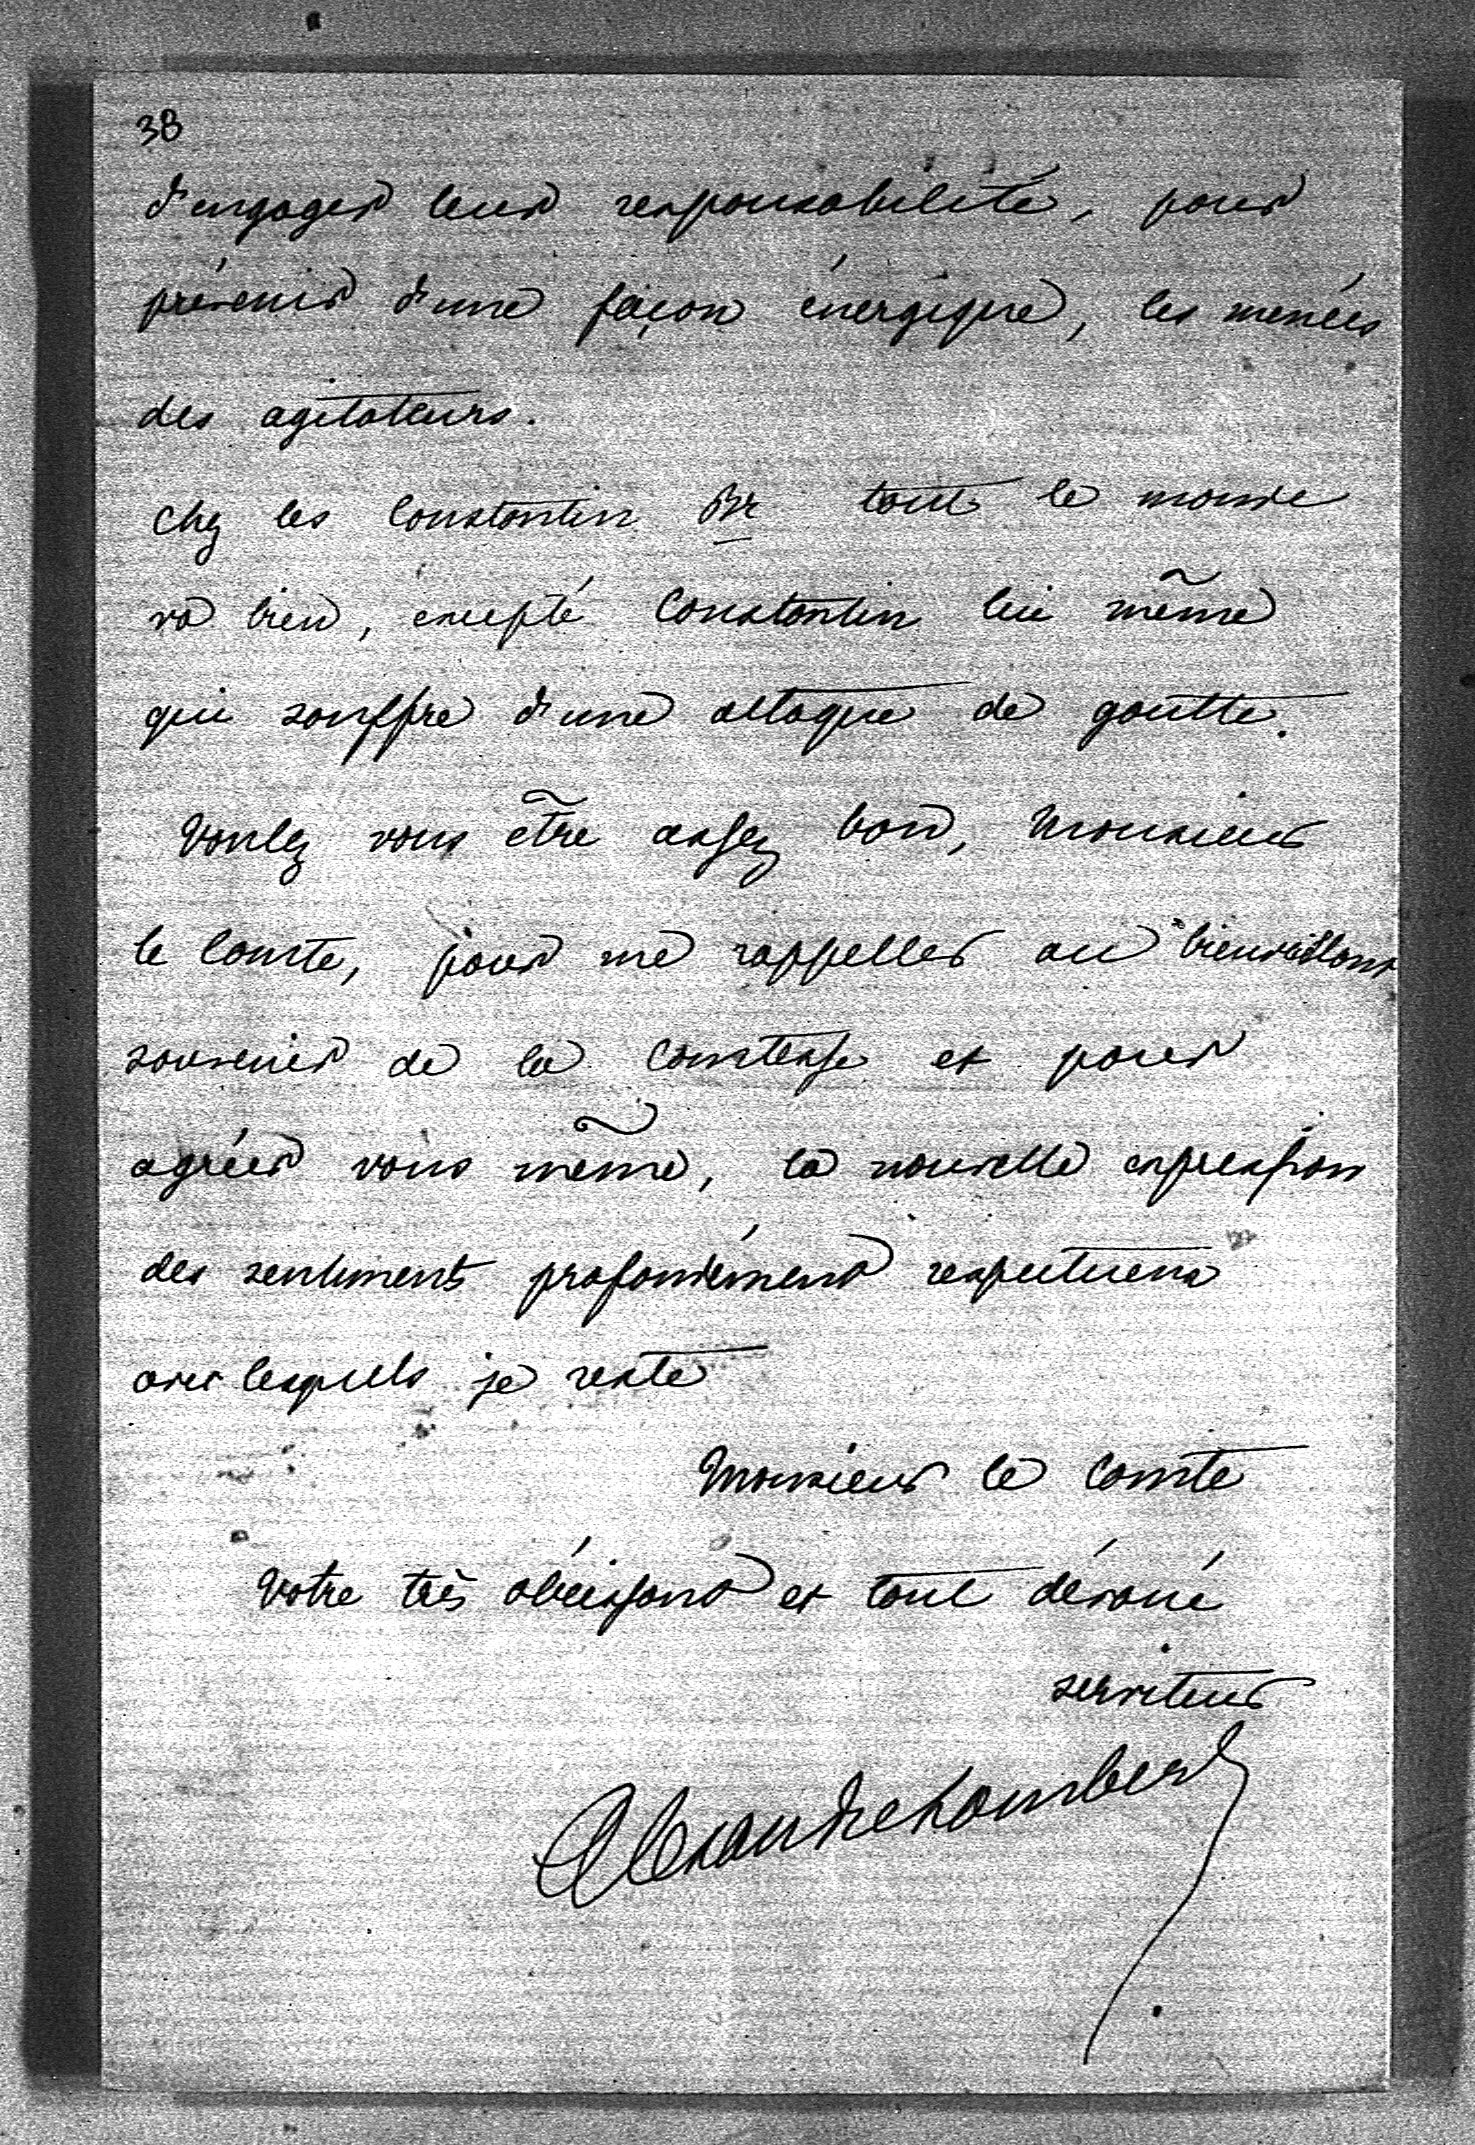 38
d'engager leur responsabilité, pour
prévenir d'une façon énergique, les menées
des agitateurs.
chez les Constantin Br tout le monde
va bien, excepté Constantin lui même
qui souffre d'une attaque de goutte.
Voulez vous être assez bon, Monsieur
le Comte, pour me rappeller au bienveillant
souvenir de la Comtesse et pour
agréer vous même, la nouvelle expression
des sentiments profondément respectueux
avec lesquels je reste
Monsieur le Comte
Votre très obéissant et tout dévoué
serviteur